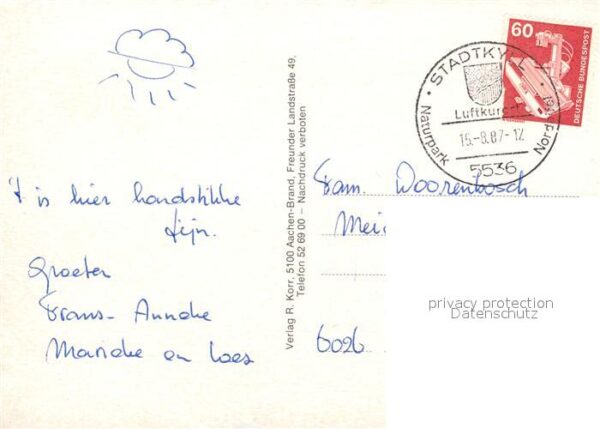 't is hier hondstikke
fijn.
Groeten
Frans - Anneke
Marieke en Loes
Verlag R. Korr, 5100 Aachen-Brand, Freunder Landstraße 49,
Telefon 52 69 00 – Nachdruck verboten
60
DEUTSCHE BUNDESPOST
STADTKYLL
Luftkurort
15.-8.87-12
5536
Naturpark
Nord
Fam. Doorenbosch
6026
privacy protection
Datenschutz